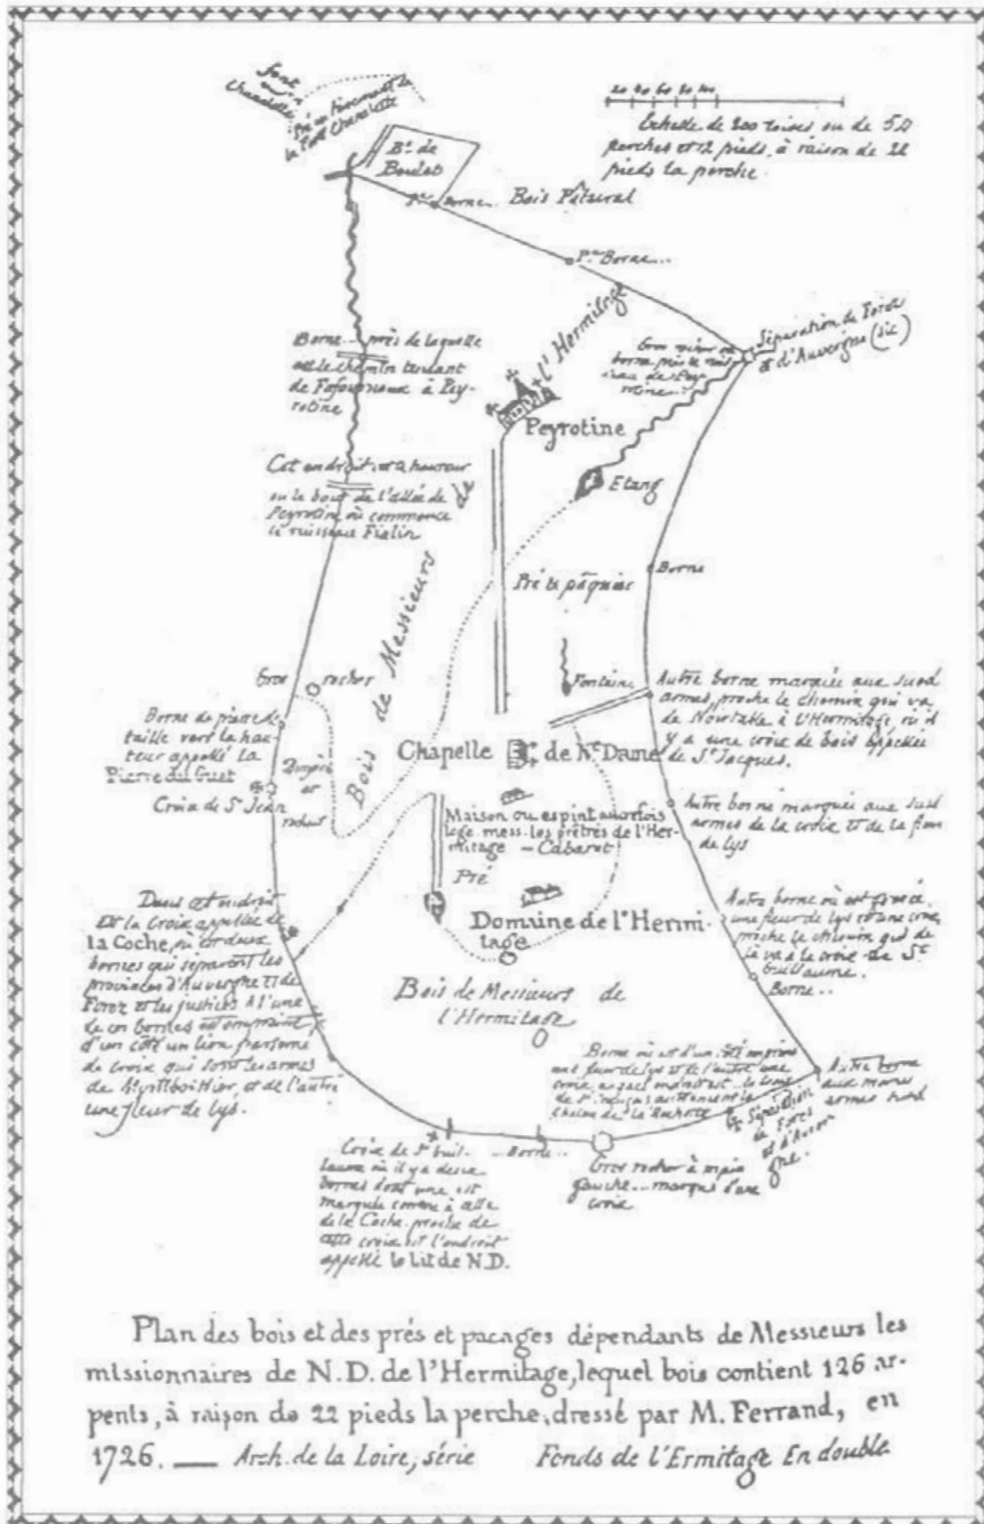 font
Chandelle
Pré au tènement de
la Font Chandelle
Bs. de
Boulet
20 40 60 80 100
Echelle de 200 toises ou de 50
perches et 12 pieds, à raison de 22
pieds la perche.
Borne... Bois Pâtural
Borne...
l'Hermitage
Séparation de Forez
et d'Auvergne (sic)
Borne... près de laquelle
est le chemin tendant
à Pey-
rotine
Peyrotine
Cet endroit est à hauteur
ou le bout de l'allée de
Peyrotine où commence
le ruisseau Fialin
Etang
Pré &
Borne
Bois de Messieurs
Gros rocher
Fontaine
Autre borne marquée aux susd
armes, proche le chemin qui va
de Noirtable à l'Hermitage, où il
y a une croix de bois appellée
de St Jacques.
Borne de pierre de
taille vers la hau-
teur appellé la
Pierre du Guet
Croix de St Jean
et
rocher
Chapelle de Ne Dame
Maison ou
loge mess. les prêtres de l'Her-
mitage — Cabaret
Autre borne marquée aux susd
armes de la croix et de la fleur
de lys
Pré
Dans cet endroit
est la Croix appellée de
la Coche, où
bornes qui séparent les
provinces d'Auvergne et de
Forez et les justices. A l'une
de ces bornes est empreint
d'un côté un lion parsemé
de croix qui sont les armes
de et de l'autre
une fleur de lys.
Domaine de l'Hermi-
tage
Autre borne où est gravée
une fleur de lys et une croix,
proche le chemin qui de
là va à la croix de St
Guillaume.
Borne..
Bois de Messieurs de
l'Hermitage
Borne où est d'un côté
une fleur de lys et de l'autre une
croix,
Autre borne
aux mêmes
armes
Séparation
de Forez
et d'Auver
gne.
Croix de St Guil-
laume où il y a deux
bornes dont une est
marquée comme à celle
de la Coche. proche de
cette croix est l'endroit
appellé le lit de N.D.
...Borne...
Gros rocher à main
gauche... marqué d'une
croix
Plan des bois et des prés et pacages dépendants de Messieurs les
missionnaires de N.D. de l'Hermitage, lequel bois contient 126 ar-
pents, à raison de 22 pieds la perche, dressé par M. Ferrand, en
1726. — Arch. de la Loire, série Fonds de l'Ermitage En double